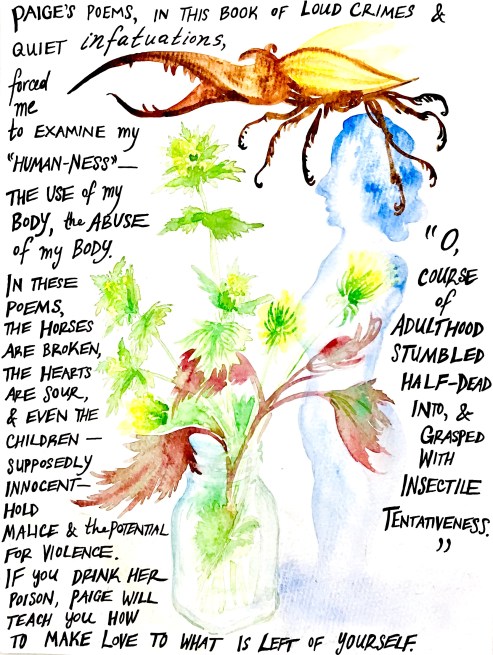 PAIGE'S POEMS, IN THIS BOOK OF LOUD CRIMES &
QUIET infatuations,
forced
me
to EXAMINE my
"HUMAN-NESS"—
THE USE of my
BODY, the ABUSE
of my BODY.
IN THESE
POEMS,
THE HORSES
ARE BROKEN,
THE HEARTS
ARE SOUR,
& EVEN THE
CHILDREN —
SUPPOSEDLY
INNOCENT—
HOLD
MALICE & the POTENTIAL
FOR VIOLENCE.
IF YOU DRINK HER
POISON, PAIGE WILL
TEACH YOU HOW
TO MAKE LOVE TO WHAT IS LEFT OF YOURSELF.
"O,
COURSE
of
ADULTHOOD
STUMBLED
HALF-DEAD
INTO, &
GRASPED
WITH
INSECTILE
TENTATIVENESS.
"